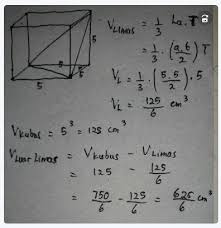 5
5
5
V Limas = 1/3 La . T
= 1/3 . (a.b/2) T
VL = 1/3 . (5.5/2) . 5
VL = 125/6 cm³
V kubus = 5³ = 125 cm³
V Luar Limas = V kubus - V Limas
= 125 - 125/6
= 750/6 - 125/6 = 625/6 cm³